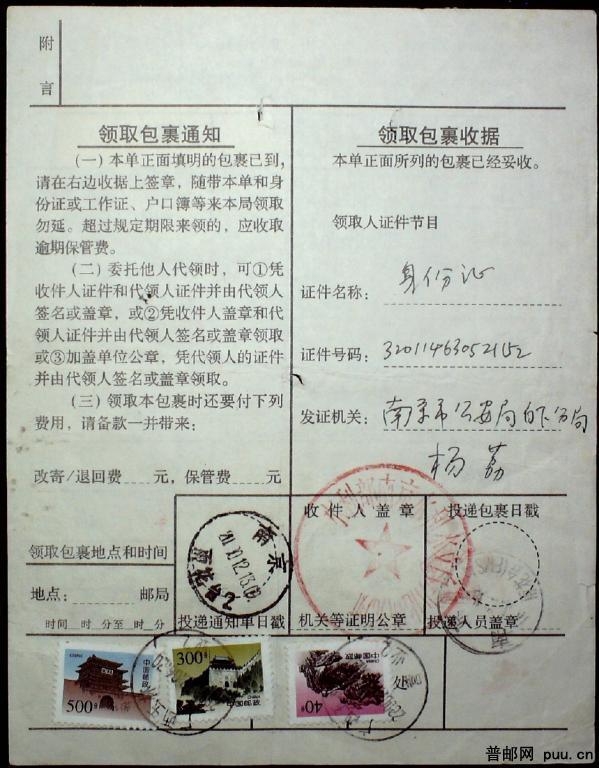 附
言
领取包裹通知
(一)本单正面填明的包裹已到,
请在右边收据上签章,随带本单和身
份证或工作证、户口簿等来本局领取
勿延。超过规定期限来领的,应收取
逾期保管费。
(二)委托他人代领时,可①凭
收件人证件和代领人证件并由代领人
签名或盖章,或②凭收件人盖章和代
领人证件并由代领人签名或盖章领取
或③加盖单位公章,凭代领人的证件
并由代领人签名或盖章领取。
(三)领取本包裹时还要付下列
费用,请备款一并带来:
改寄/退回费 元,保管费 元
领取包裹地点和时间
地点: 邮局
时间 时 分至 时 分
领取包裹收据
本单正面所列的包裹已经妥收。
领取人证件节目
证件名称: 身份证
证件号码: 320114630521152
发证机关: 南京市公安局白下分局
杨荔
投递通知单日戳
南京
雨花台2
收件人盖章
机关等证明公章
投递包裹日戳
投递人员盖章
500分
中国邮政
CHINA
300分
中国邮政
CHINA
40分
中国邮政
CHINA
普邮网 puu.cn